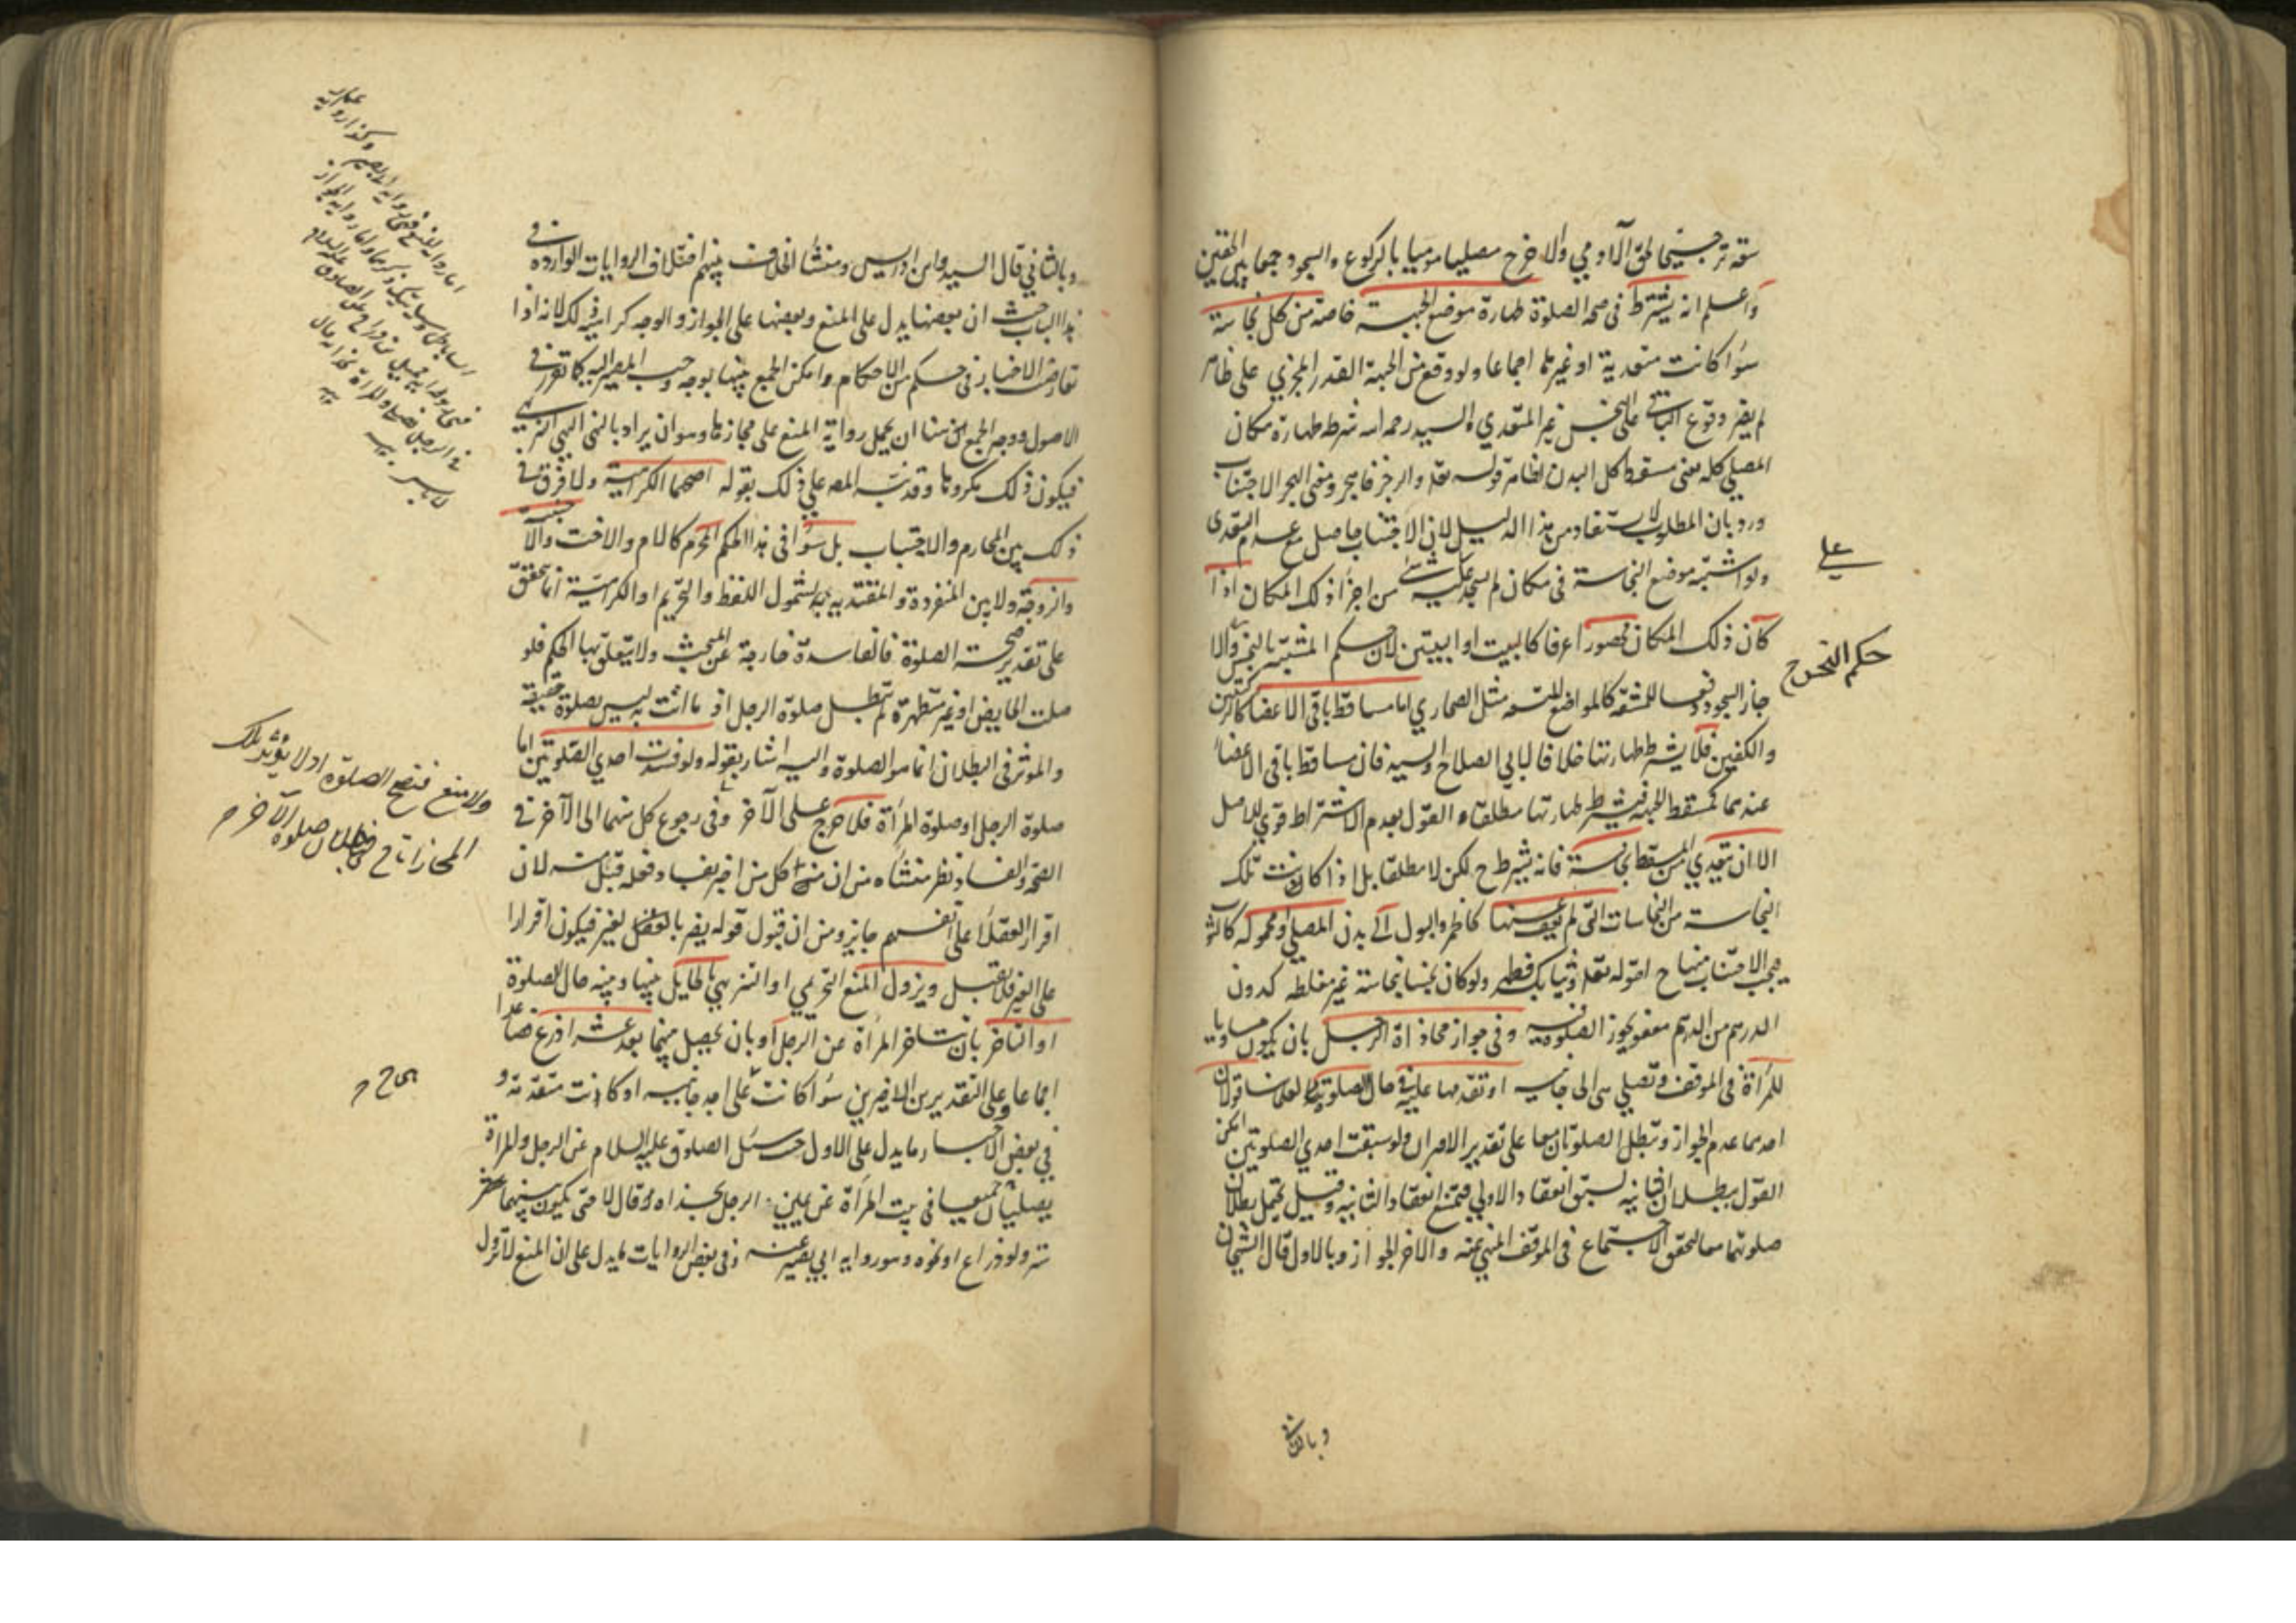 سعته ترجيحا لحق الآدمي والاخرج مصليا موميا بالركوع والسجود جمعا بين الحقين
واعلم انه يشترط في صحة الصلوة طهارة موضع الجبهة خاصة من كل نجاسة
سوا كانت متعدية او غيرها اجماعا ولو وقع من الجبهة القدر المجزي على طاهر
لم يضر وقوع الباقي على النجس غير المتعدي والسيد رحمه الله شرط طهارة مكان
المصلي كله يعني مسقط كل البدن لظاهر قوله تعالى والرجز فاهجر ومعنى الهجر الاجتناب
ورد بان المطلوب لا يستفاد من هذا الدليل لان الاجتناب حاصل مع عدم التعدي
ولو اشتبه موضع النجاسة في مكان لم يسجد على شي من اجزا ذلك المكان اذا
كان ذلك المكان محصورا عرفا كالبيت او البيتين لان حكم المشتبه بالنجس والا
جاز السجود دفعا للمشقة كالمواضع المتسعة مثل الصحاري اما مساقط باقي الاعضا كالركبتين
والكفين فلا يشترط طهارتها خلافا لابي الصلاح والسيد فان مساقط باقي الاعضا
عندهما كمسقط الجبهة فيشترط طهارتها مطلقا والقول بعدم الاشتراط قوي للاصل
الا ان تتعدي من المسقط نجاسة فانه يشترط ح لكن لا مطلقا بل اذا كانت تلك
النجاسة من النجاسات التي لم يعف عنها كالخمر والبول الى بدن المصلي او محموله كالثوب
فيجب الاجتناب منها ح لقوله تعالى وثيابك فطهر ولو كان نجسا بنجاسة غير مغلظة كدون
الدرهم من الدم معفو يجوز الصلوة فيه وفي جواز محاذاة الرجل بان يكون مساويا
للمرأة في الموقف وتصلي هي الى جانبه او تقدمها عليه في حال الصلوة لعلمائنا قولان
احدهما عدم الجواز وتبطل الصلوتان معا على تقدير الاقتران ولو سبقت احدي الصلوتين امكن
القول ببطلان الثانية لسبق انعقاد الاولي فيمتنع انعقاد الثانية وقيل يحتمل بطلان
صلوتهما معا لتحقق الاجتماع في الموقف المنهي عنه والاخر الجواز وبالاول قال الشيخان
حكم التحرج
وبالثاني
وبالثاني قال السيد وابن ادريس ومنشأ الخلاف بينهم اختلاف الروايات الواردة في
هذا الباب حيث ان بعضها يدل على المنع وبعضها على الجواز والوجه كراهية ذلك لانه اذا
تعارضت الاخبار في حكم من الاحكام وامكن الجمع بينها بوجه وجب المصير اليه كما تقرر في
الاصول ووجه الجمع هنا ان يحمل رواية المنع على مجازها وهو ان يراد بالنهي النهي التنزيهي
فيكون ذلك مكروها وقد نبه المصه على ذلك بقوله اصحهما الكراهية ولا فرق في
ذلك بين المحارم والاجتباب بل سوا في هذا الحكم المحرم كالام والاخت والاجنبية
والزوجة ولا بين المنفردة والمقتدية به لشمول اللفظ والتحريم او الكراهية انما تتحقق
على تقدير صحة الصلوة فالفاسدة خارجة عن المبحث ولا يتعلق بها الحكم فلو
صلت الحايض او غير متطهرة لم تبطل صلوة الرجل اذ ما اتت به ليس بصلوة حقيقة
والموثر في البطلان انما هو الصلوة واليه اشار بقوله ولو فسدت احدي الصلوتين اما
صلوة الرجل او صلوة المرأة فلا حرج على الآخر وفي رجوع كل منهما الى الآخر في
الصحة والفساد نظر منشأه من ان من شأن كل من اخبر بفساد فعله قبل منه لان
اقرار العقلا على انفسهم جايز ومن ان قبول قوله يضر بالغير فيكون اقرارا
على الغير فلا يقبل ويزول المنع التحريمي او التنزيهي بالحايل بينها وبينه حال الصلوة
او التاخر بان تتاخر المرأة عن الرجل او بان يحصل بينهما بعد عشر اذرع فصاعدا
اجماعا وعلى التقديرين الاخيرين سوا كانت على احد جانبيه او كانت متقدمة و
في بعض الاخبار ما يدل على الاول حيث سئل الصادق عليه السلام عن الرجل والمرأة
يصليان جميعا في بيت المرأة عن يمين الرجل بحذاه قال لا حتى يكون بينهما شبر
ستر ولو ذراع او نحوه وهو رواية ابي بصير عنه وفي بعض الروايات ما يدل على ان المنع لا يزول
ولا منع فتصح الصلوة اذ لا يؤثر تلك
المحاذاة ح في بطلان صلوة الآخر م